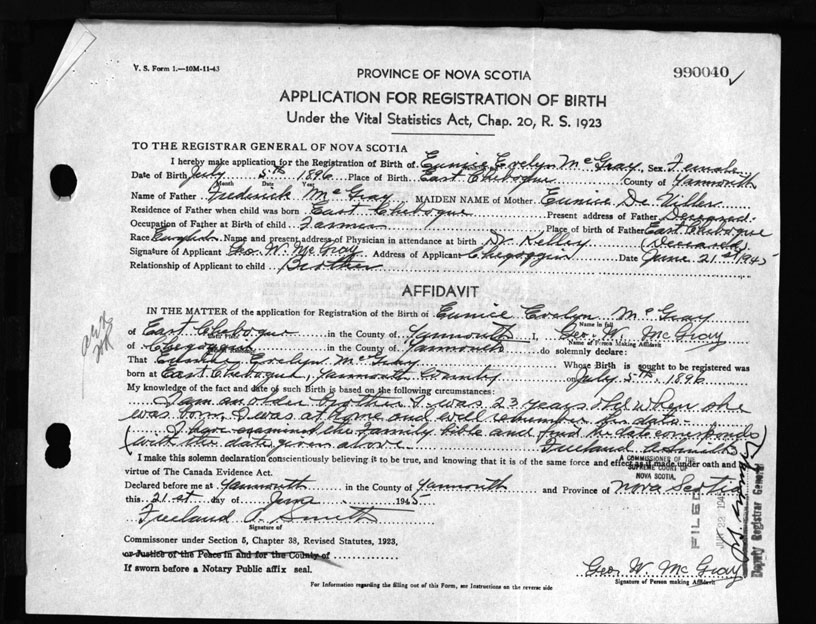 V. S. Form 1.—10M-11-43
990040
PROVINCE OF NOVA SCOTIA
APPLICATION FOR REGISTRATION OF BIRTH
Under the Vital Statistics Act, Chap. 20, R. S. 1923
TO THE REGISTRAR GENERAL OF NOVA SCOTIA
I hereby make application for the Registration of Birth of Eunice Evelyn McGray, Sex Female
Date of Birth July 5th 1896 Place of Birth East Chebogue County of Yarmouth
Month Date Year
Name of Father Frederick McGray MAIDEN NAME of Mother Eunice De Viller
Residence of Father when child was born East Chebogue Present address of Father Deceased
Occupation of Father at Birth of child Farmer Place of birth of Father East Chebogue
Race English Name and present address of Physician in attendance at birth Dr Kelley (Deceased)
Signature of Applicant Geo. W. McGray Address of Applicant Chegoggin Date June 21st 1945
Relationship of Applicant to child Brother
AFFIDAVIT
IN THE MATTER of the application for Registration of the Birth of Eunice Evelyn McGray
Name in full
of East Chebogue in the County of Yarmouth I, Geo. W. McGray
Name of Person making Affidavit
of Chegoggin in the County of Yarmouth do solemnly declare:
That Eunice Evelyn McGray Whose Birth is sought to be registered was
born at East Chebogue Yarmouth County on July 5th 1896
My knowledge of the fact and date of such Birth is based on the following circumstances:
I am an older brother I was 23 years old when she
was born, I was at home and well remember the date.
(I have examined the family bible and find the date corresponds
with the date given above. Freeland A. Smith)
I make this solemn declaration conscientiously believing it to be true, and knowing that it is of the same force and effect as if made under oath and
virtue of The Canada Evidence Act.
A COMMISSIONER OF THE
SUPREME COURT OF
NOVA SCOTIA
Declared before me at Yarmouth in the County of Yarmouth and Province of Nova Scotia
this 21st day of June 1945
Freeland A. Smith
Signature of
Commissioner under Section 5, Chapter 38, Revised Statutes, 1923,
or Justice of the Peace in and for the County of
If sworn before a Notary Public affix seal.
FILED
1945
Deputy Registrar General
Geo. W. McGray
Signature of Person making Affidavit
For Information regarding the filling out of this Form, see Instructions on the reverse side